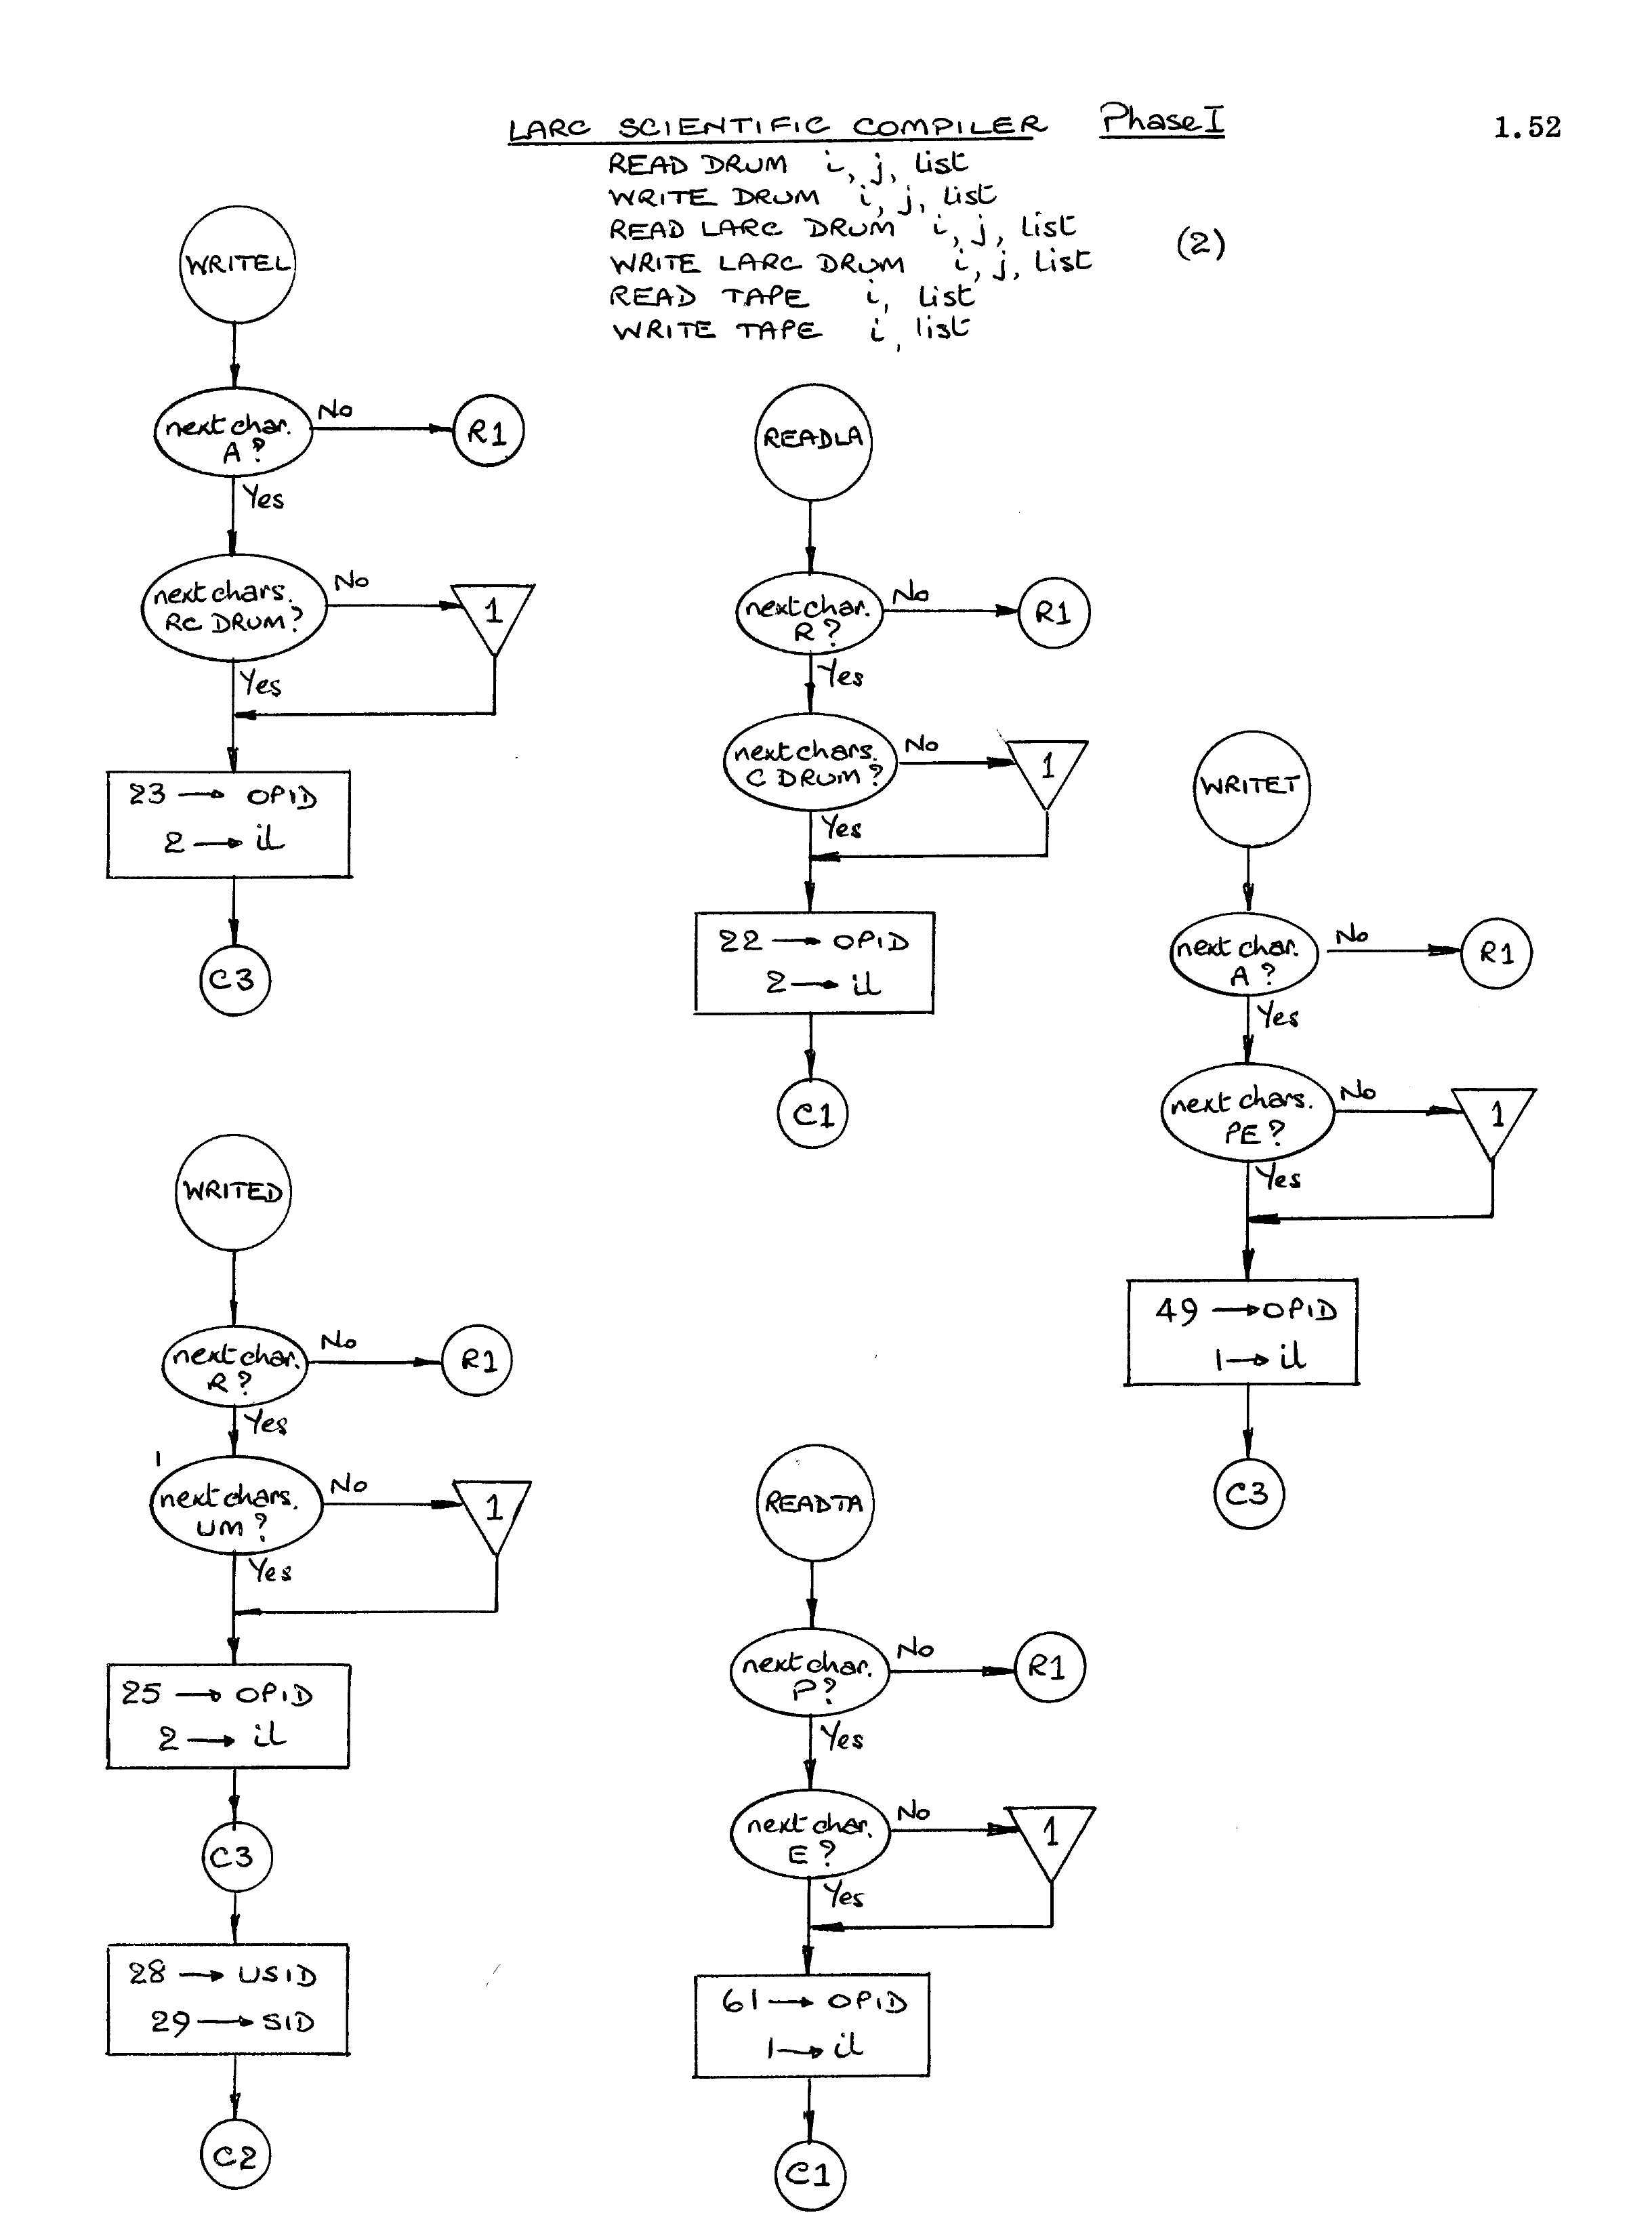 LARC SCIENTIFIC COMPILER Phase I
1.52
READ DRUM i, j, list
WRITE DRUM i, j, list
READ LARC DRUM i, j, list
WRITE LARC DRUM i, j, list
READ TAPE i, list
WRITE TAPE i, list
(2)
WRITEL
next char.
A?
No
R1
Yes
next chars.
RC DRUM?
No
1
Yes
23 → OPID
2 → il
C3
READLA
next char.
R?
No
R1
Yes
next chars.
C DRUM?
No
1
Yes
22 → OPID
2 → il
C1
WRITET
next char.
A?
No
R1
Yes
next chars.
PE?
No
1
Yes
49 → OPID
1 → il
C3
WRITED
next char.
R?
No
R1
Yes
next chars.
UM?
No
1
Yes
25 → OPID
2 → il
C3
28 → USID
29 → SID
C2
READTA
next char.
P?
No
R1
Yes
next char.
E?
No
1
Yes
61 → OPID
1 → il
C1